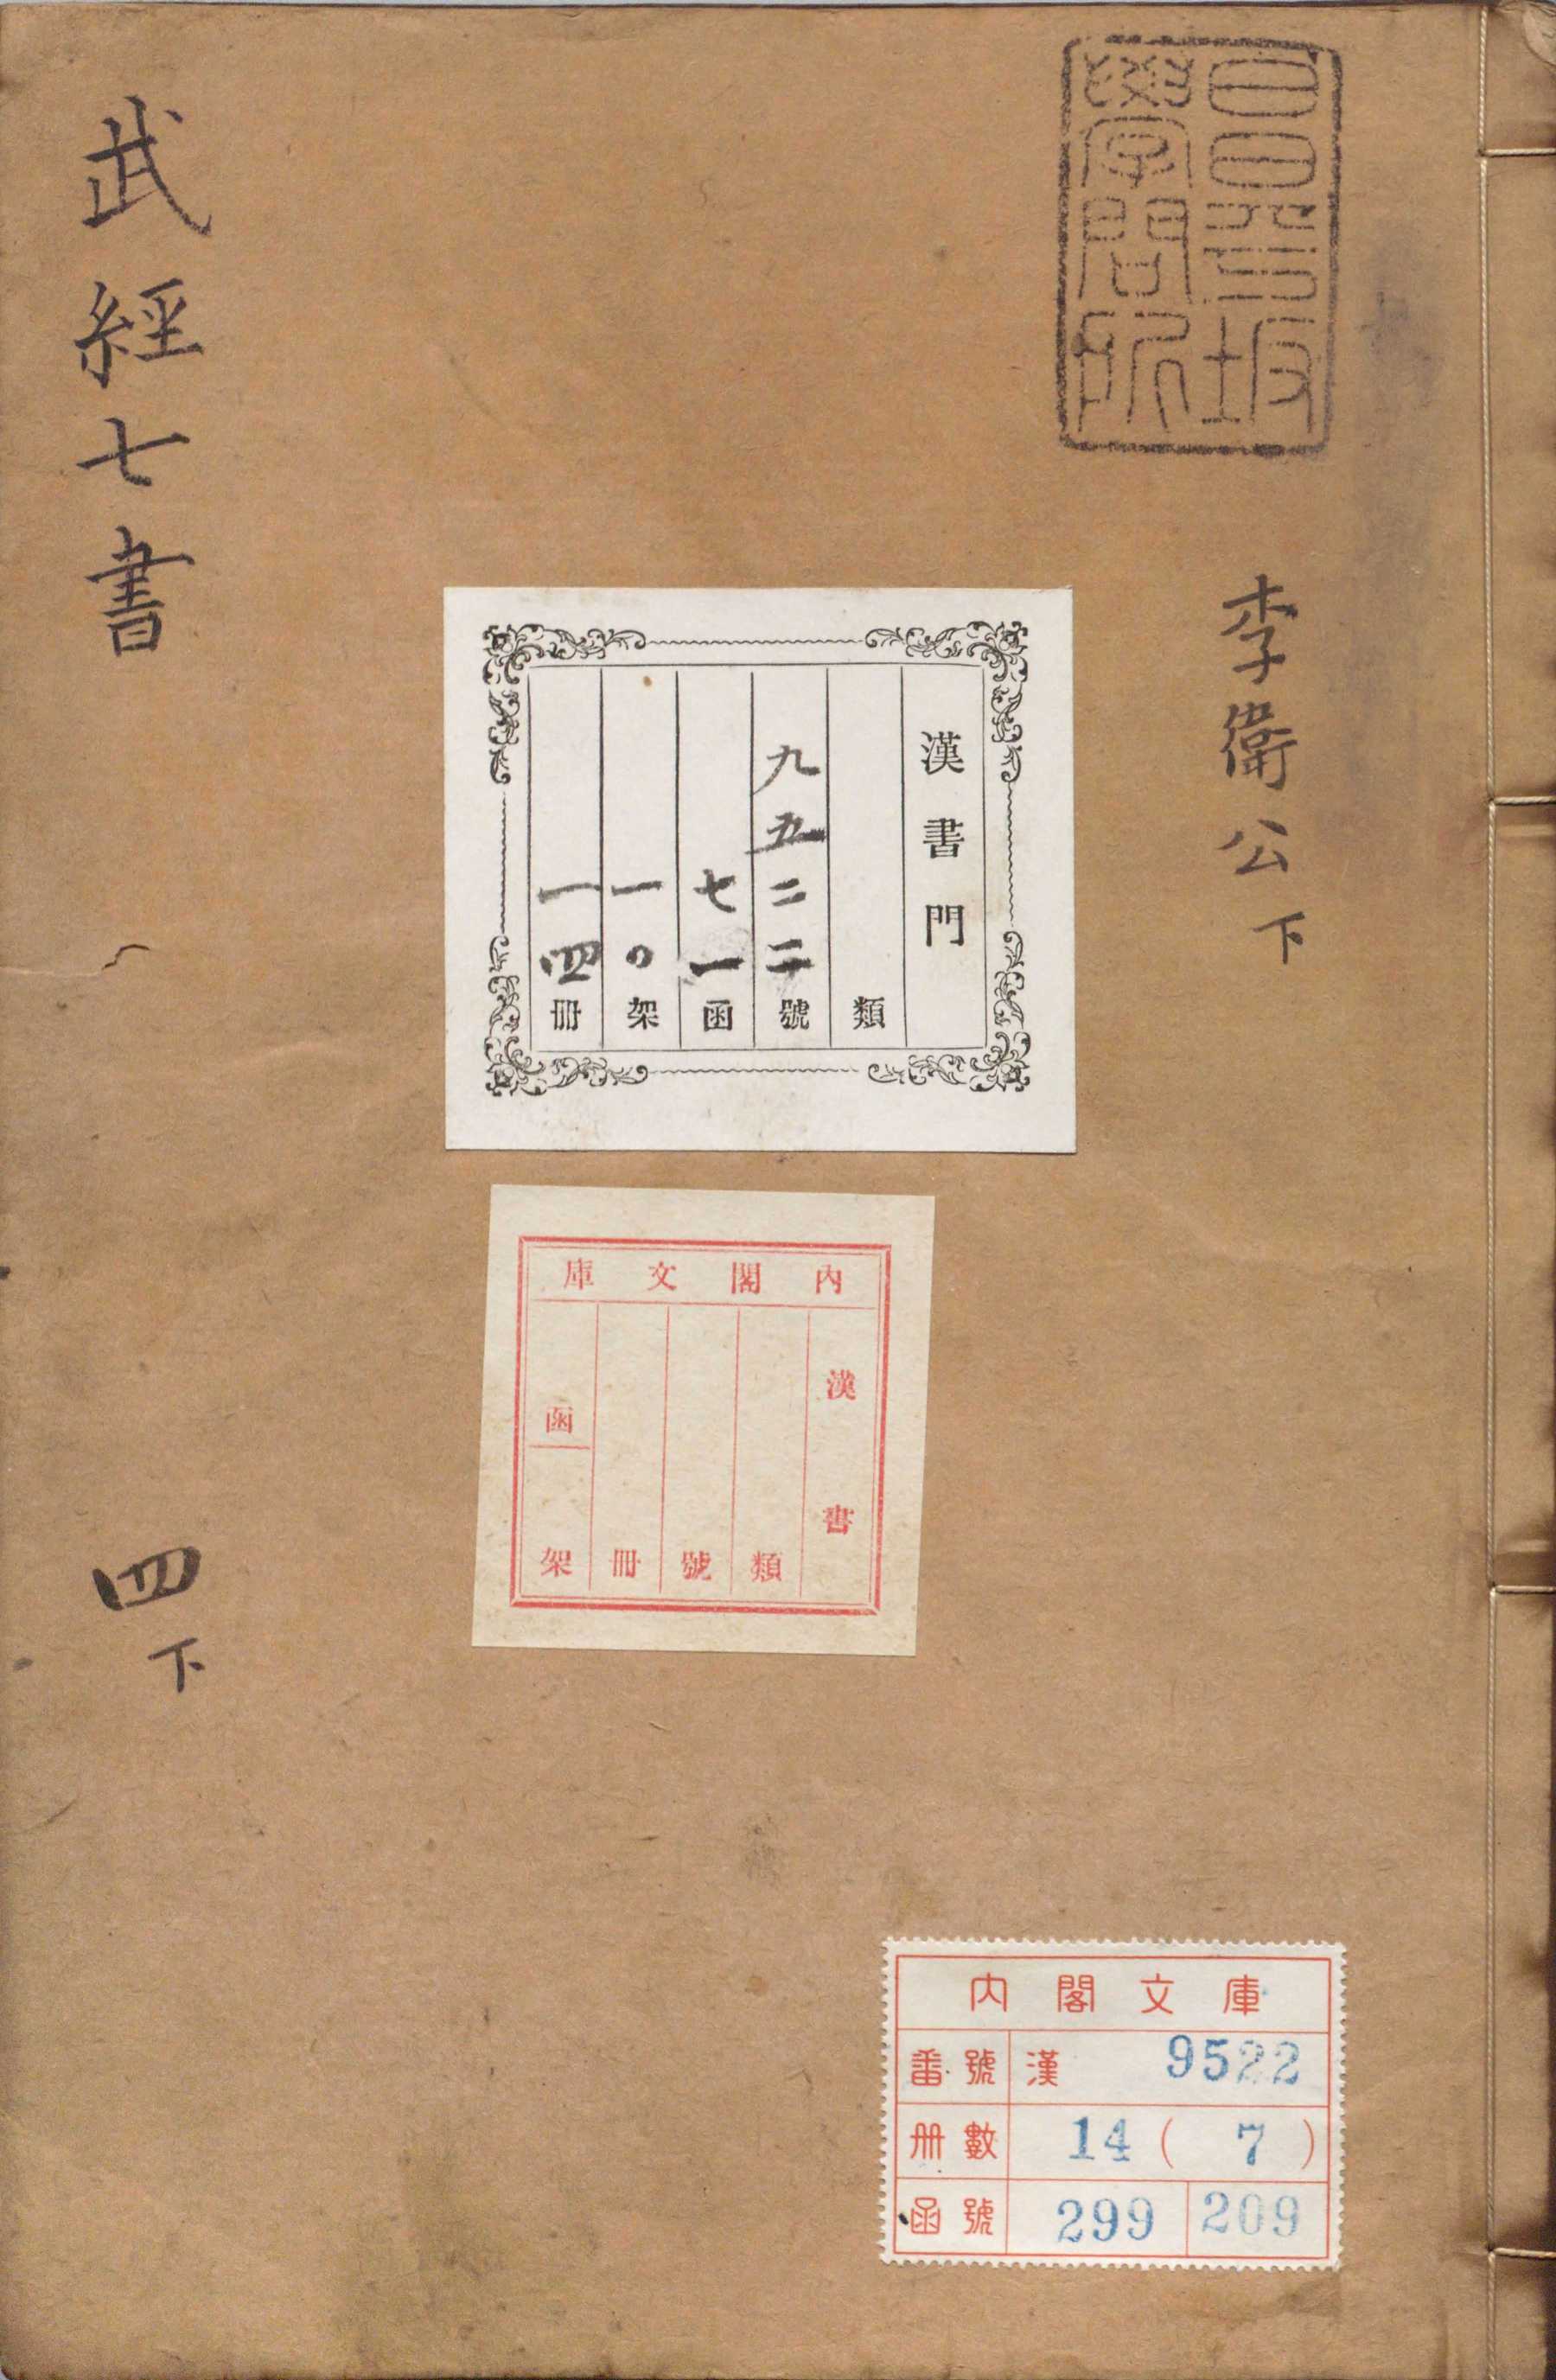 昌平坂
學問所
李衛公下
漢書門
類
九五二二號
七一函
一〇架
一四冊
內閣文庫
漢書
類
號
冊
函
架
內閣文庫
番號 漢 9522
冊數 14 ( 7 )
函號 299 209
武經七書
四下